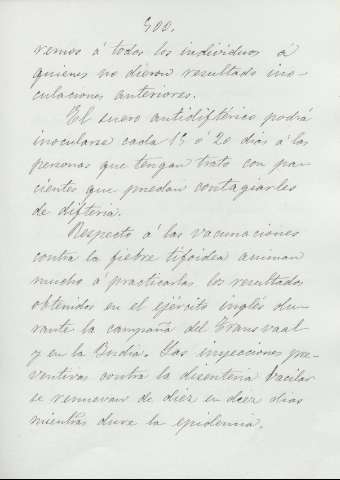 300.
remos á todos los individuos á
quienes no dieron resultado ino-
culaciones anteriores.
El suero antidiftérico podrá
inocularse cada 15 ó 20 dias á las
personas que tengan trato con pa-
cientes que puedan contagiarles
de difteria.
Respecto á las vacunaciones
contra la fiebre tifoidea animan
mucho á practicarlas los resultados
obtenidos en el ejército inglés du-
rante la campaña del Transvaal
y en la India. Las inyecciones pre-
ventivas contra la disenteria bacilar
se renuevan de diez en diez dias
mientras dure la epidemia.